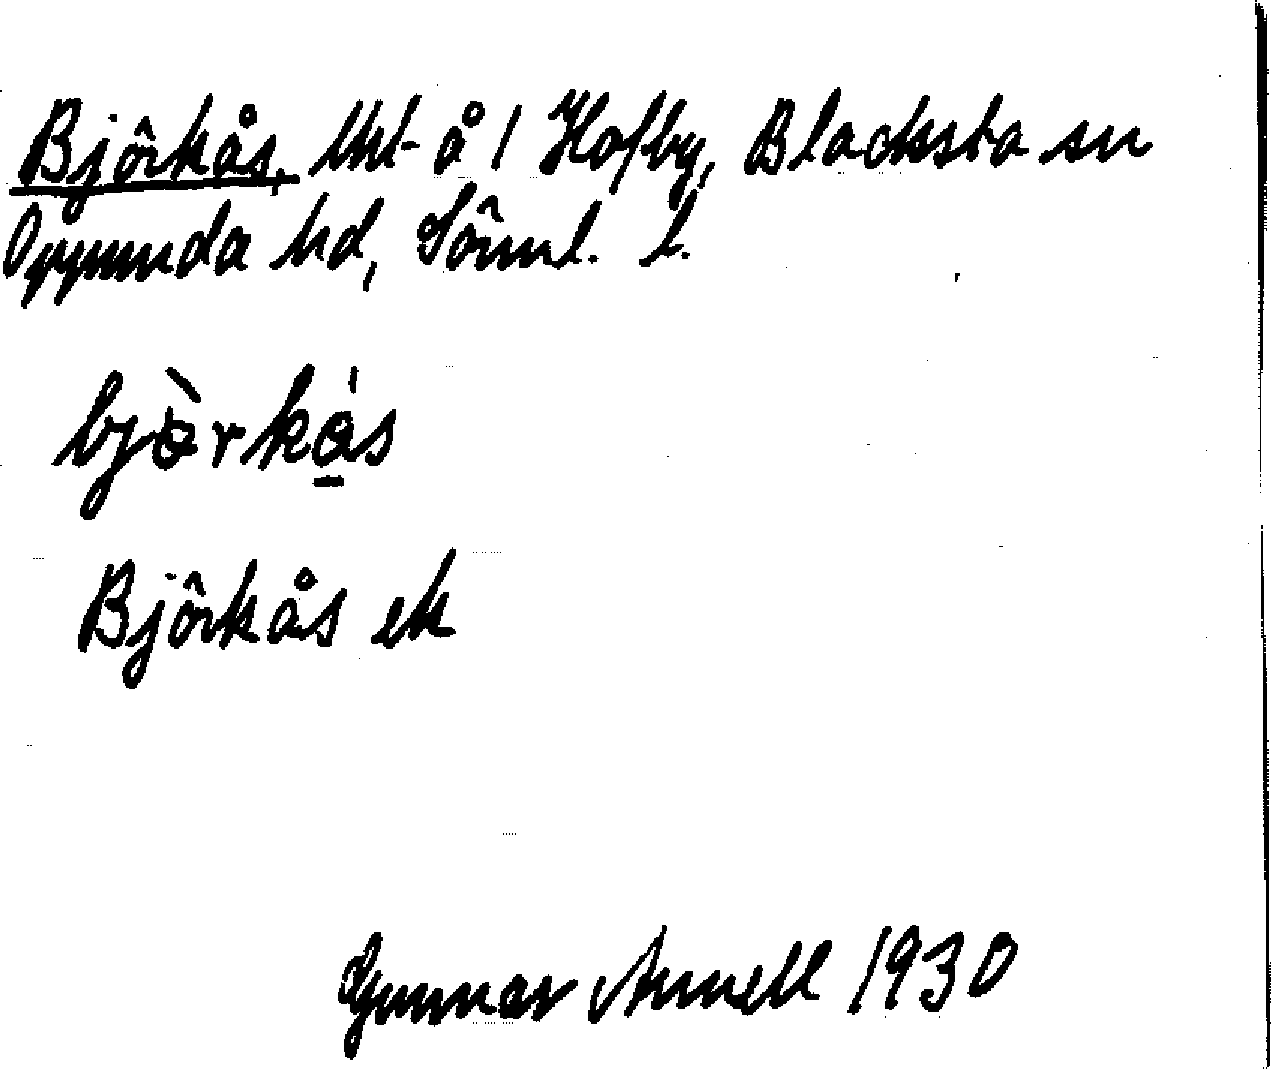 Björkås, lht å / Hofby, Blacksta sn
Oppunda hd, Söml. l.
bjòrkás
Björkås ek
Gunnar Annell 1930